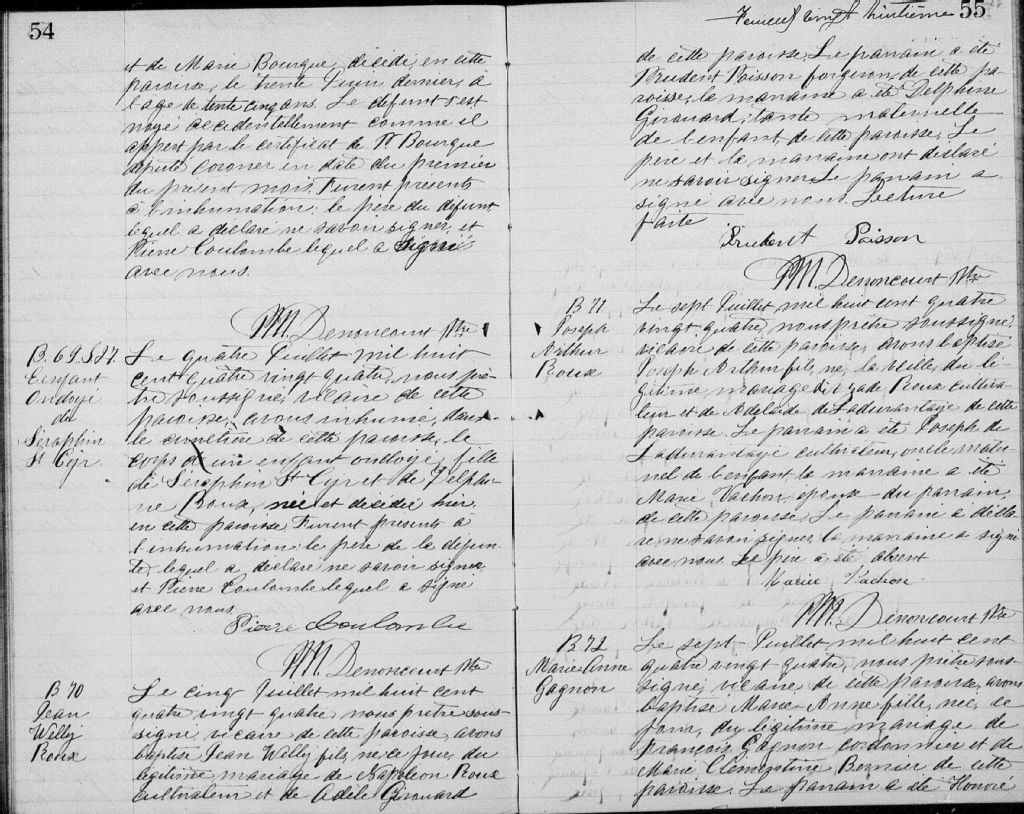 54
et de Marie Bourque, décédé en cette
paroisse, le trente Juin dernier, à
l'age de trente cinq ans. Le défunt s'est
noyé accidentellement comme il
appert par le certificat de Bourque
député coroner en date du premier
du présent mois. Furent présents
à l'inhumation: le père du défunt
lequel a déclaré ne savoir signer, et
Pierre Coulombe lequel a signé
avec nous.
Denoncourt Ptre
B. 69. S 27
L'enfant
Ondoyé
de
Séraphin
St Cyr.
Le quatre Juillet mil huit
cent quatre vingt quatre, nous prê-
tre soussigné, vicaire de cette
paroisse, avons inhumé, dans
le cimetière de cette paroisse, le
corps d'un enfant ondoyé, fille
de Séraphin St Cyr et de Delphi-
ne Roux, née et décédée hier
en cette paroisse. Furent présents à
l'inhumation: le père de la défun-
te, lequel a déclaré ne savoir signer,
et Pierre Coulombe lequel a signé
avec nous
Pierre Coulombe
Denoncourt Ptre
B 70
Jean
Willy
Roux
Le cinq Juillet mil huit cent
quatre vingt quatre nous prêtre sous-
signé, vicaire de cette paroisse, avons
baptisé Jean Willy, fils, né ce jour, du
légitime mariage de Napoléon Roux
cultivateur et de Adèle Girouard
Feuillet vingt huitième 55
de cette paroisse. Le parrain a été
Prudent Poisson forgeron, de cette pa-
roisse; la marraine a été Delphine
Girouard, tante maternelle
de l'enfant, de cette paroisse. Le
père et la marraine ont déclaré
ne savoir signer. Le parrain a
signé avec nous. Lecture
faite
Prudent Poisson
Denoncourt Ptre
B 71
Joseph
Arthur
Roux
Le sept Juillet mil huit cent quatre
vingt quatre nous prêtre soussigné,
vicaire de cette paroisse, avons baptisé
Joseph Arthur fils, né, la veille, du lé-
gitime mariage d' Roux cultiva-
teur et de Adélaïde de Ladurantaye de cette
paroisse. Le parrain a été Joseph de
Ladurantaye cultivateur, oncle mater-
nel de l'enfant, la marraine a été
Marie Vachon, épouse du parrain,
de cette paroisse. Le parrain a décla-
ré ne savoir signer, la marraine a signé
avec nous. Le père a été absent
Marie Vachon
Denoncourt Ptre
B 72
Marie-Anne
Gagnon
Le sept Juillet mil huit cent
quatre vingt quatre, nous prêtre sous-
signé, vicaire de cette paroisse, avons
baptisé Marie Anne fille, née, ce
jour, du légitime mariage de
François Gagnon cordonnier et de
Marie Clémentine Bernier de cette
paroisse. Le parrain a été Honoré